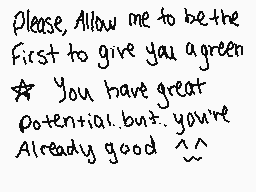 Please, Allow me to be the
First to give you a green
☆ You have great
potential..but..you're
Already good ^‿^